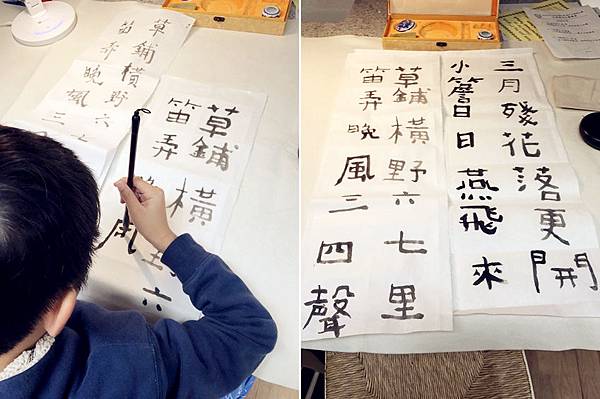 草鋪橫野六
笛弄晚風三
草鋪橫
六
笛弄
風
三月殘花落更開
小簷日日燕飛來
草鋪橫野六七里
笛弄晚風三四聲